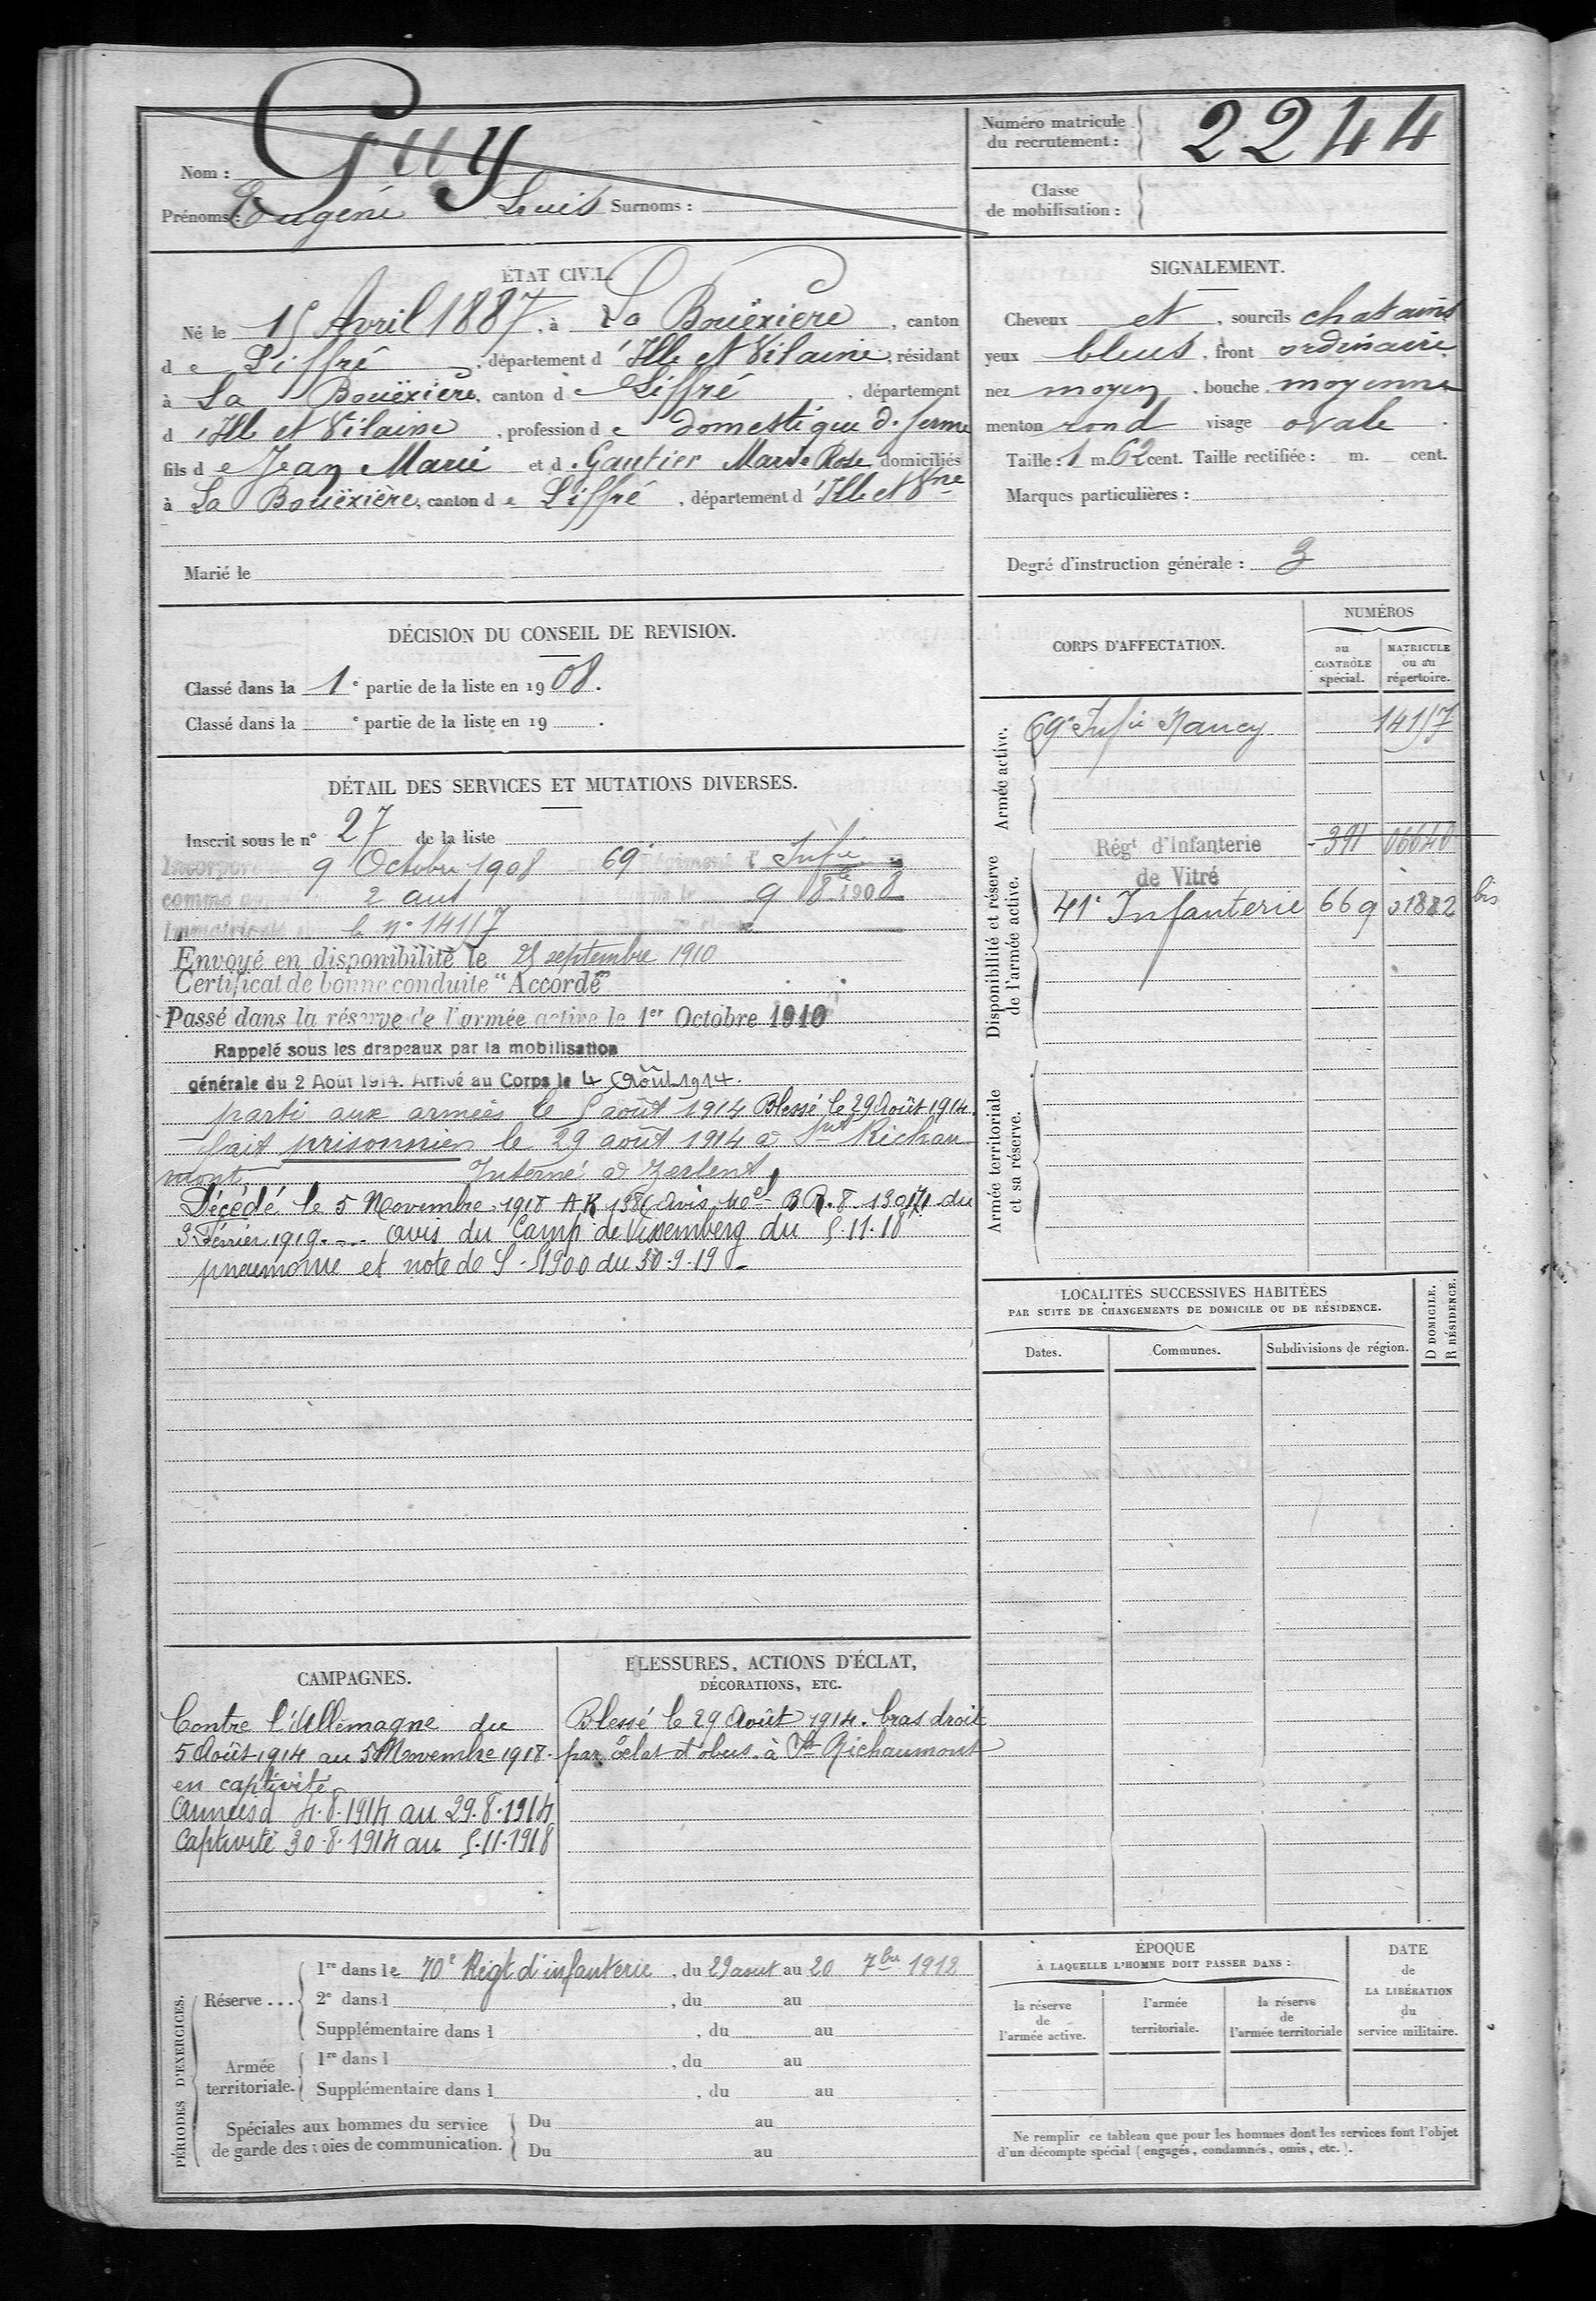 Nom : Guy
Prénoms : Eugène Louis Surnoms :
Numéro matricule du recrutement : 2244
Classe de mobilisation :
ÉTAT CIVIL.
Né le 15 Avril 1887, à La Bouëxière, canton
de Liffré, département d'Ille et Vilaine, résidant
à La Bouëxière, canton de Liffré, département
d'Ille et Vilaine, profession de domestique d. ferme
fils de Jean Marie et d. Gautier Marie Rose domiciliés
à La Bouëxière, canton de Liffré, département d'Ille et Vne
Marié le
SIGNALEMENT.
Cheveux et, sourcils chatains
yeux bleus, front ordinaire
nez moyen, bouche moyenne
menton rond visage ovale.
Taille : 1 m. 62 cent. Taille rectifiée : m. cent.
Marques particulières :
Degré d'instruction générale : 3
DÉCISION DU CONSEIL DE REVISION.
Classé dans la 1e partie de la liste en 1908.
Classé dans la e partie de la liste en 19 .
DÉTAIL DES SERVICES ET MUTATIONS DIVERSES.
Inscrit sous le n° 27 de la liste
Incorporé 9 Octobre 1908 69e Régiment d'Infie
comme 2 aus 9 8bre 1908
Immatriculé le n° 14157
Envoyé en disponibilité le 25 septembre 1910
Certificat de bonne conduite "Accordé"
Passé dans la réserve de l'armée active le 1er Octobre 1910
Rappelé sous les drapeaux par la mobilisation
générale du 2 Août 1914. Arrivé au Corps le 4 Août 1914.
parti aux armées le 5 août 1914 Blessé le 29 Août 1914.
fait prisonnier le 29 août 1914 à Snt Richau
mont. Interné à Zerbent
Décédé le 5 Novembre 1918 AK 1386 Avis Mel B R. 8 13074 du
3 Février 1919. --- avis du Camp de Vissemberg du 5.11.18
pneumonie et note de S. 51900 du 30.9.19 -
CORPS D'AFFECTATION.
NUMÉROS
au CONTRÔLE spécial.
MATRICULE ou au répertoire.
Armée active.
69e Infie Nancy 14157
Disponibilité et réserve de l'armée active.
Régt d'Infanterie 391 06640
de Vitré
41e Infanterie 669 01882 bis
Armée territoriale et sa réserve.
LOCALITÉS SUCCESSIVES HABITÉES
PAR SUITE DE CHANGEMENTS DE DOMICILE OU DE RÉSIDENCE.
Dates. Communes. Subdivisions de région.
D DOMICILE.
R RÉSIDENCE.
CAMPAGNES.
Contre l'Allemagne du
5 Août 1914 au 5 Novembre 1918.
en captivité
Armées d 4.8.1914 au 29.8.1914
Captivité 30.8.1914 au 5.11.1918
BLESSURES, ACTIONS D'ÉCLAT,
DÉCORATIONS, ETC.
Blessé le 29 Août 1914. bras droit
par éclat d'obus à St Richaumont
PÉRIODES D'EXERCICES.
Réserve ...
1re dans le 70e Régt d'infanterie, du 29 aout au 20 7bre 1912
2e dans l , du au
Supplémentaire dans l , du au
Armée territoriale.
1re dans l , du au
Supplémentaire dans l , du au
Spéciales aux hommes du service
de garde des voies de communication.
Du au
Du au
ÉPOQUE
À LAQUELLE L'HOMME DOIT PASSER DANS :
la réserve de l'armée active.
l'armée territoriale.
la réserve de l'armée territoriale
DATE de LA LIBÉRATION du service militaire.
Ne remplir ce tableau que pour les hommes dont les services font l'objet
d'un décompte spécial (engagés, condamnés, omis, etc.).